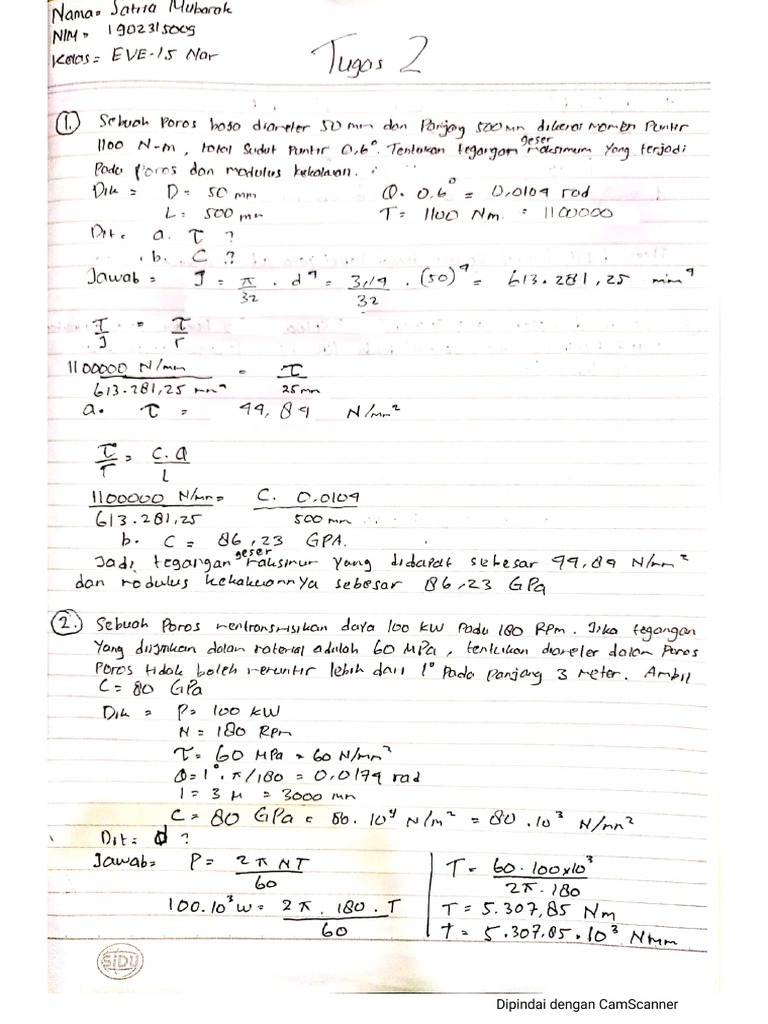 Nama = Satria Mubarok
NIM = 190231500g
Kelas = EVE-15 Nar
Tugas 2
1. Sebuah Poros baso diameter 50 mm dan Panjang 500 mm dikenai momen Puntir
1100 N-m, total sudut Puntir 0,6°. Tentukan tegangan geser maksimum yang terjadi
Pada poros dan modulus kekakuan.
Dik = D = 50 mm Q. 0.6° = 0,0104 rad
L = 500 mm T = 1100 Nm. = 1100000
Dit. a. τ ?
b. C ?
Jawab = J = π/32 . d⁴ = 3,14/32 . (50)⁴ = 613.281,25 mm⁴
T/J = τ/r
1100000 N/mm / 613.281,25 mm⁴ = τ / 25mm
a. τ = 44,84 N/mm²
τ/r = C.Q/L
1100000 N/mm / 613.281,25 = C. 0.0104 / 500 mm
b. C = 86,23 GPA.
Jadi tegangan geser maksimum yang didapat sebesar 44,84 N/mm²
dan modulus kekakuannya sebesar 86,23 GPa
2. Sebuah Poros mentransmisikan daya 100 kW Pada 180 RPm. Jika tegangan
Yang diijinkan dalam material adalah 60 MPa, tentukan diameter dalam Poros
Poros tidak boleh memuntir lebih dari 1° Pada panjang 3 meter. Ambil
C = 80 GPa
Dik = P = 100 KW
N = 180 RPm
τ = 60 MPa = 60 N/mm²
Q = 1°. π/180 = 0,0174 rad
l = 3 M = 3000 mm
C = 80 GPa = 80.10⁹ N/m² = 80.10³ N/mm²
Dit = d ?
Jawab = P = 2πNT/60
100.10³w = 2π . 180 . T / 60
T = 60.100x10³ / 2π.180
T = 5.307,85 Nm
T = 5.307.85.10³ Nmm
SIDU
Dipindai dengan CamScanner